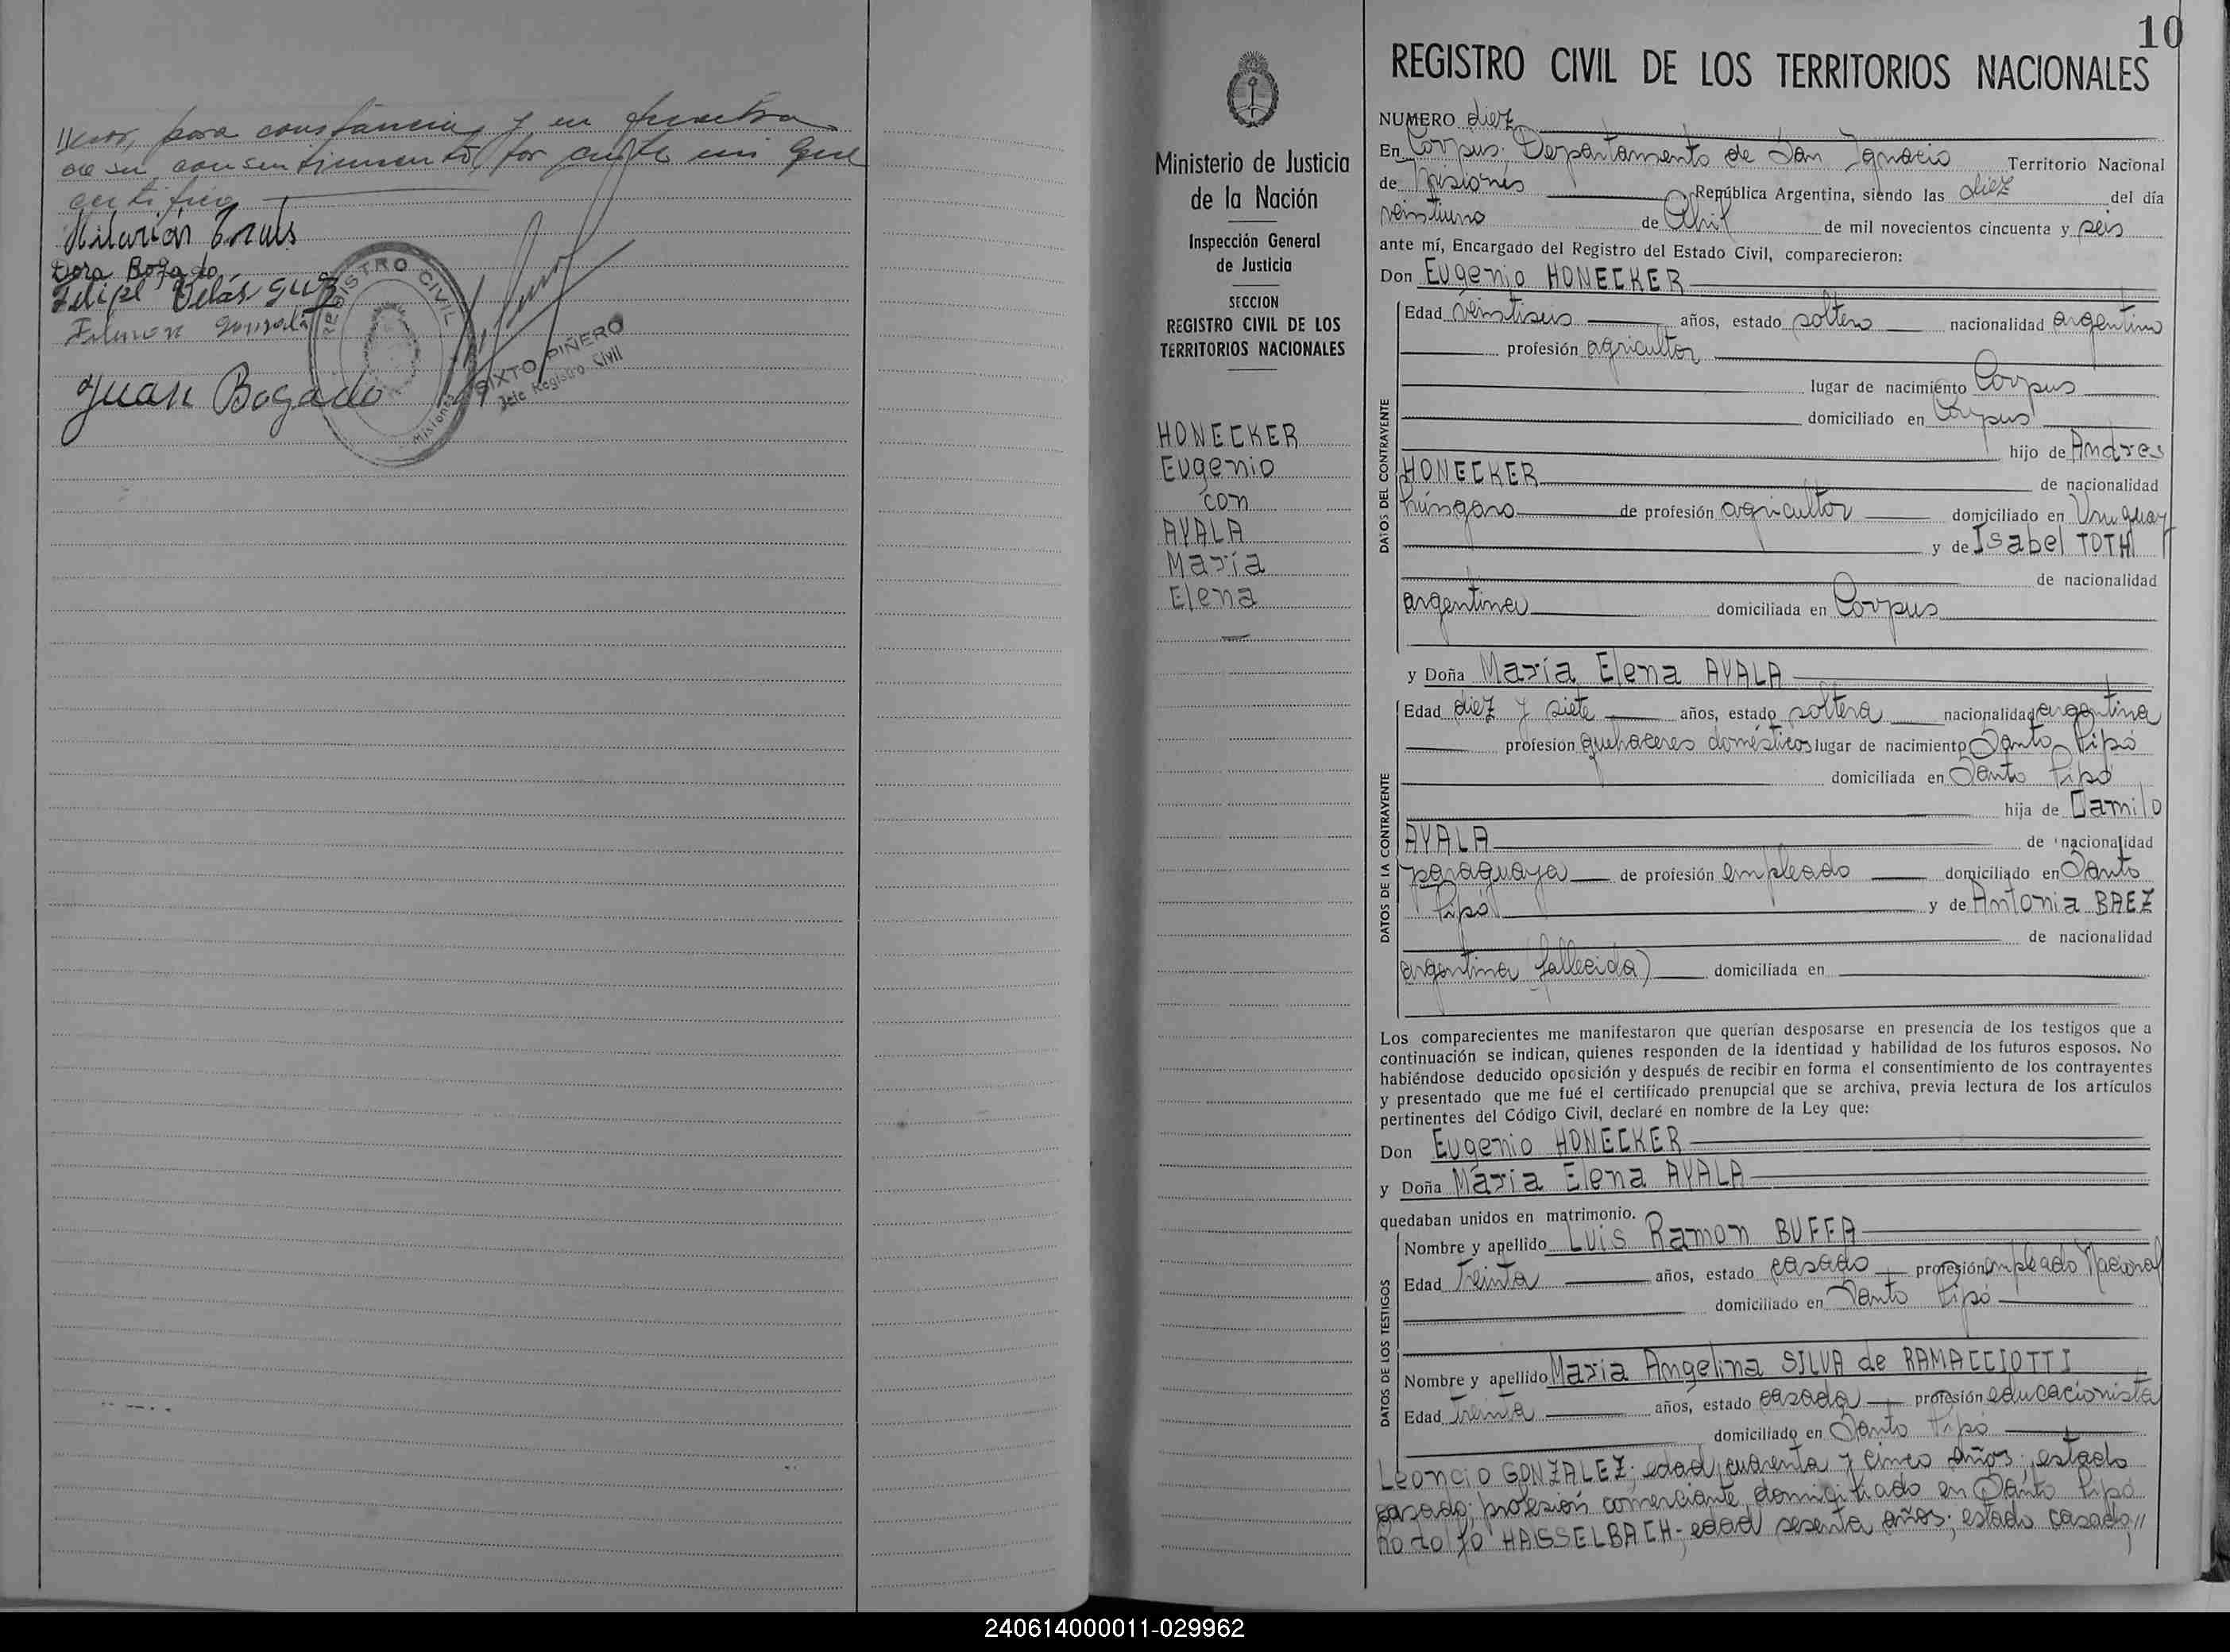 para constancia y en prueba
de su consentimiento, por ante mi que
certifico
Hilarión
Dora Bogado
Felipe Velásquez
Juan Bogado
REGISTRO CIVIL
Misiones
SIXTO PIÑERO
Jefe Registro Civil
Ministerio de Justicia
de la Nación
Inspección General
de Justicia
SECCION
REGISTRO CIVIL DE LOS
TERRITORIOS NACIONALES
HONECKER
Eugenio
con
AYALA
María
Elena
10
REGISTRO CIVIL DE LOS TERRITORIOS NACIONALES
NUMERO diez
En Corpus. Departamento de San Ignacio Territorio Nacional
de Misiones República Argentina, siendo las diez del día
veintiuno de Abril de mil novecientos cincuenta y seis
ante mí, Encargado del Registro del Estado Civil, comparecieron:
Don Eugenio HONECKER
DATOS DEL CONTRAYENTE
Edad veintiseis años, estado soltero nacionalidad argentino
profesión agricultor
lugar de nacimiento Corpus
domiciliado en Corpus
hijo de Andres
HONECKER de nacionalidad
húngaro de profesión agricultor domiciliado en Uruguay
y de Isabel TOTH
de nacionalidad
argentina domiciliada en Corpus
y Doña María Elena AYALA
DATOS DE LA CONTRAYENTE
Edad diez y siete años, estado soltera nacionalidad argentina
profesión quehaceres domésticos lugar de nacimiento Santo Pipó
domiciliada en Santo Pipó
hija de Camilo
AYALA de nacionalidad
paraguaya de profesión empleado domiciliado en Santo
Pipó y de Antonia BAEZ
de nacionalidad
argentina (fallecida) domiciliada en
Los comparecientes me manifestaron que querían desposarse en presencia de los testigos que a
continuación se indican, quienes responden de la identidad y habilidad de los futuros esposos. No
habiéndose deducido oposición y después de recibir en forma el consentimiento de los contrayentes
y presentado que me fué el certificado prenupcial que se archiva, previa lectura de los artículos
pertinentes del Código Civil, declaré en nombre de la Ley que:
Don Eugenio HONECKER
y Doña María Elena AYALA
quedaban unidos en matrimonio.
DATOS DE LOS TESTIGOS
Nombre y apellido Luis Ramon BUFFA
Edad treinta años, estado casado profesión empleado Nacional
domiciliado en Santo Pipó
Nombre y apellido Maria Angelina SILVA de RAMACCIOTTI
Edad treinta años, estado casada profesión educacionista
domiciliado en Santo Pipó
Leoncio GONZALEZ; edad cuarenta y cinco años; estado
casado; profesión comerciante, domiciliado en Santo Pipó
Rodolfo HASSELBACH- edad sesenta años; estado casado,//
240614000011-029962